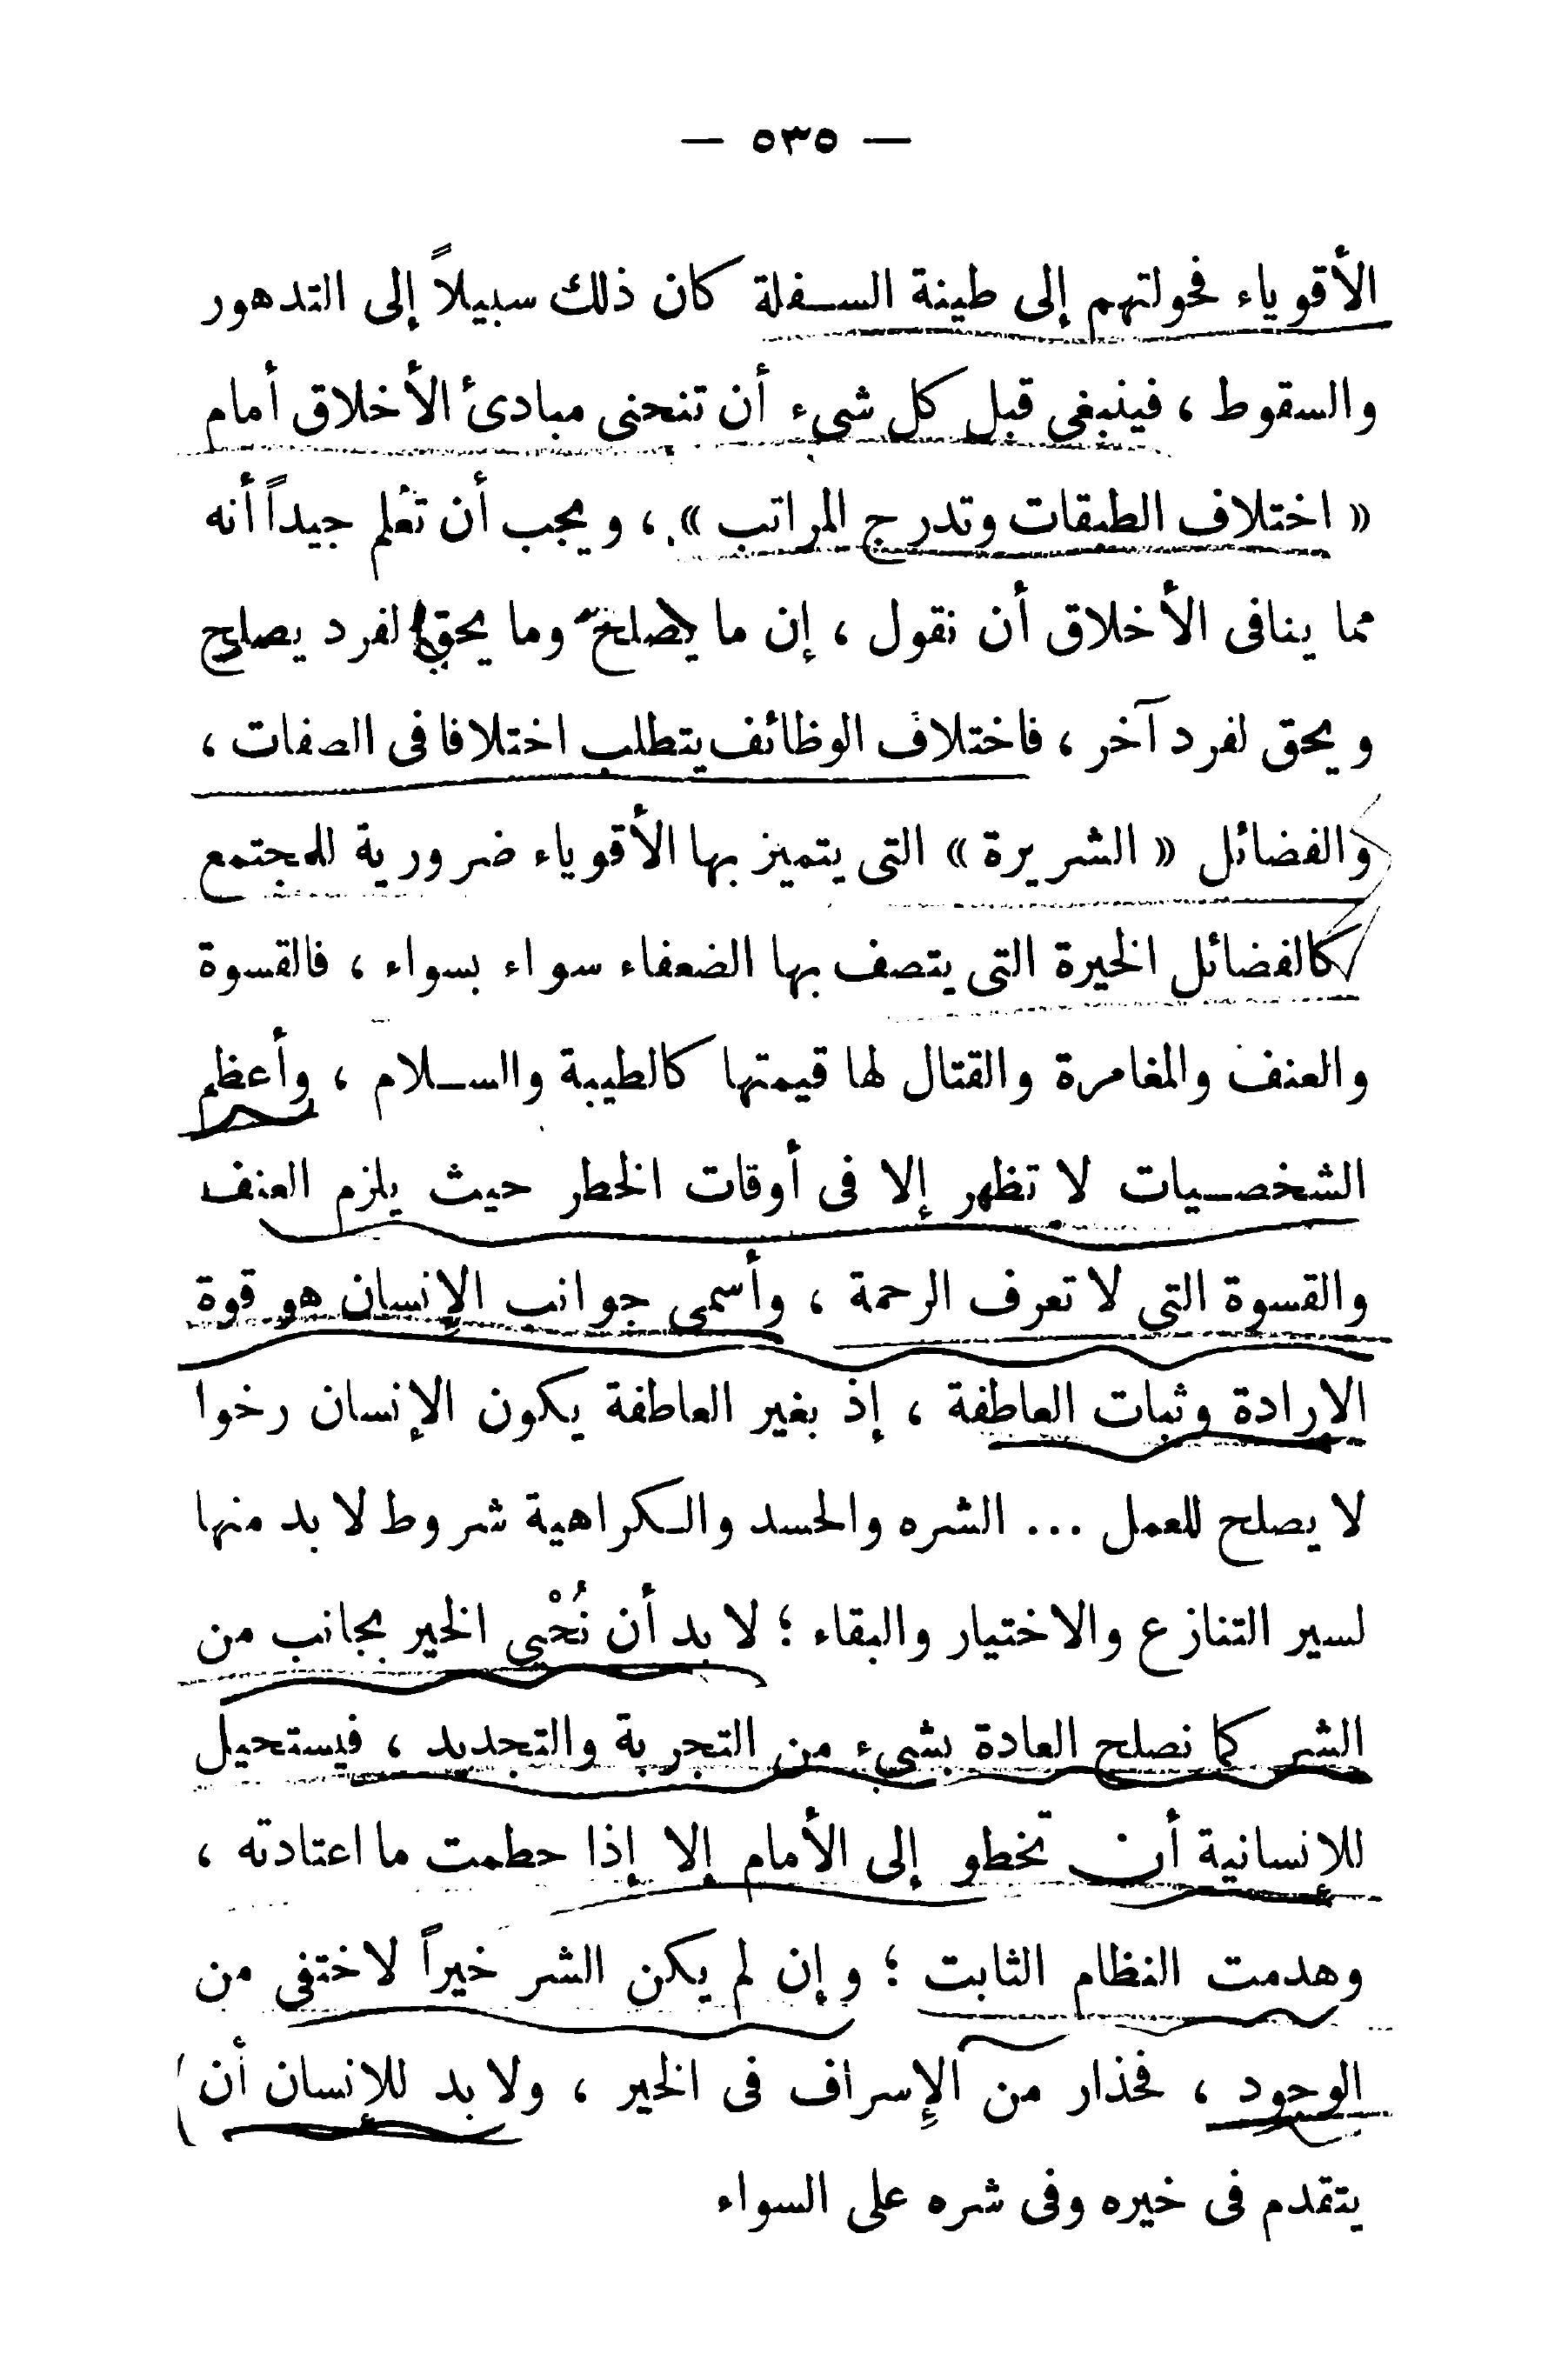 — ٥٣٥ —
الأقوياء فحولتهم إلى طينة السفلة كان ذلك سبيلاً إلى التدهور
والسقوط ، فينبغى قبل كل شىء أن تنحنى مبادئ الأخلاق أمام
« اختلاف الطبقات وتدرج المراتب » ، ويجب أن تعلم جيداً أنه
مما ينافى الأخلاق أن نقول ، إن ما يصلح وما يحق لفرد يصلح
ويحق لفرد آخر ، فاختلاف الوظائف يتطلب اختلافا فى الصفات ،
والفضائل « الشريرة » التى يتميز بها الأقوياء ضرورية للمجتمع
كالفضائل الخيرة التى يتصف بها الضعفاء سواء بسواء ، فالقسوة
والعنف والمغامرة والقتال لها قيمتها كالطيبة والسلام ، وأعظم
الشخصيات لا تظهر إلا فى أوقات الخطر حيث يلزم العنف
والقسوة التى لا تعرف الرحمة ، وأسمى جوانب الإنسان هو قوة
الإرادة وثبات العاطفة ، إذ بغير العاطفة يكون الإنسان رخوا
لا يصلح للعمل ... الشره والحسد والكراهية شروط لا بد منها
لسير التنازع والاختيار والبقاء ؛ لا بد أن نُحْيى الخير بجانب من
الشر كما نصلح العادة بشىء من التجربة والتجديد ، فيستحيل
للإنسانية أن تخطو إلى الأمام إلا إذا حطمت ما اعتادته ،
وهدمت النظام الثابت ؛ وإن لم يكن الشر خيراً لاختفى من
الوجود ، فحذار من الإسراف فى الخير ، ولا بد للإنسان أن
يتقدم فى خيره وفى شره على السواء